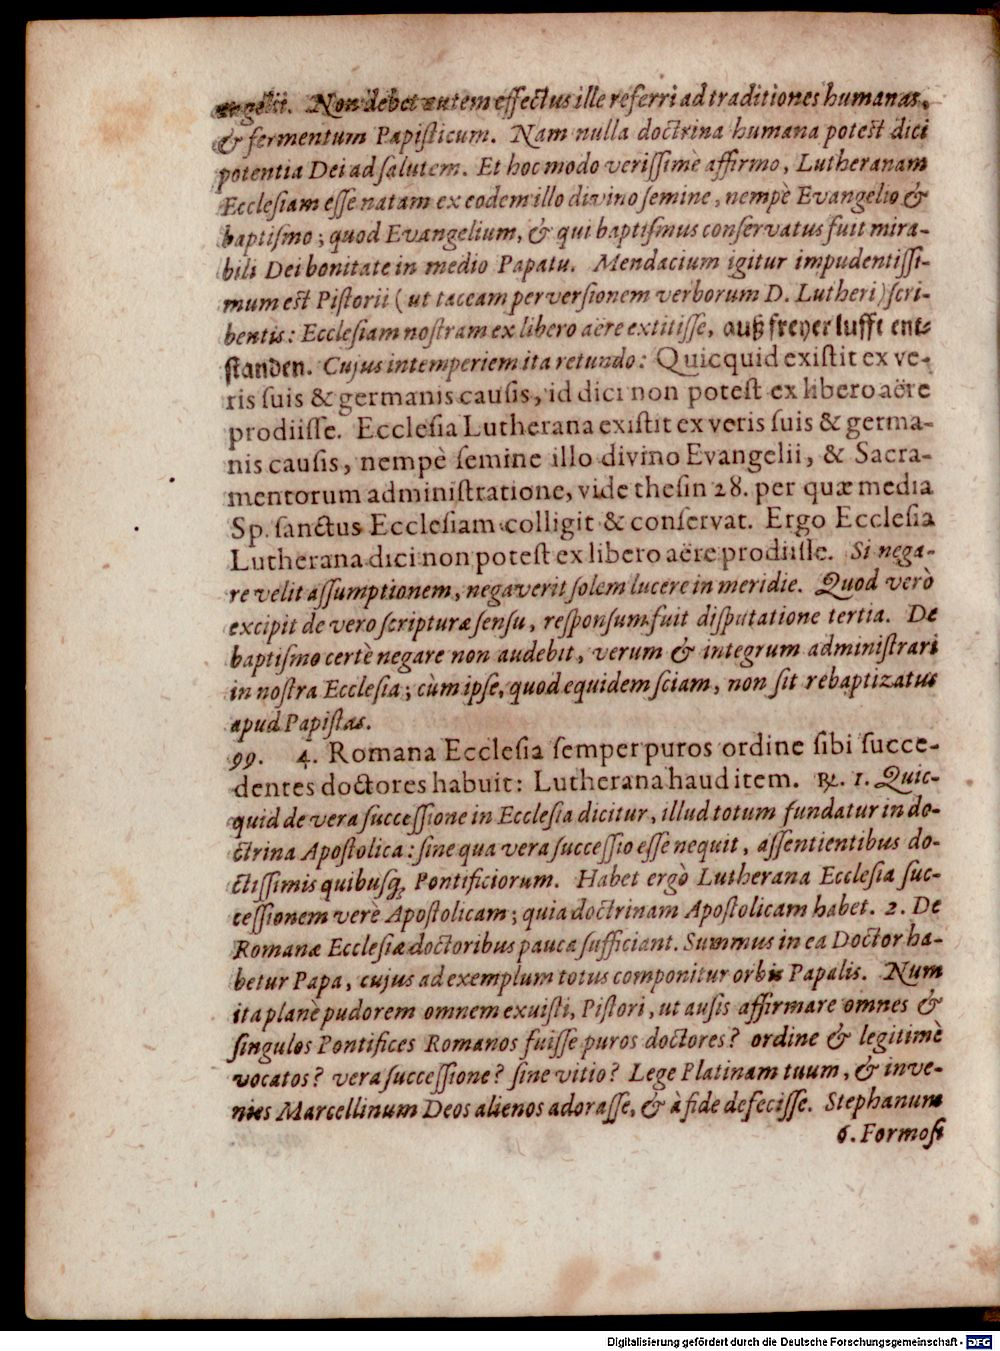 angelii. Non debet autem effectus ille referri ad traditiones humanas,
& fermentum Papisticum. Nam nulla doctrina humana potest dici
potentia Dei ad salutem. Et hoc modo verissimè affirmo, Lutheranam
Ecclesiam esse natam ex eodem illo divino semine, nempè Evangelio &
baptismo; quod Evangelium, & qui baptismus conservatus fuit mira-
bili Dei bonitate in medio Papatu. Mendacium igitur impudentissi-
mum est Pistorii (ut taceam perversionem verborum D. Lutheri) scri-
bentis: Ecclesiam nostram ex libero aëre extitisse, auß freyer lufft ent-
standen. Cujus intemperiem ita retundo: Quicquid existit ex ve-
ris suis & germanis causis, id dici non potest ex libero aëre
prodiisse. Ecclesia Lutherana existit ex veris suis & germa-
nis causis, nempè semine illo divino Evangelii, & Sacra-
mentorum administratione, vide thesin 28. per quæ media
Sp. sanctus Ecclesiam colligit & conservat. Ergo Ecclesia
Lutherana dici non potest ex libero aëre prodiisse. Si nega-
re velit assumptionem, negaverit solem lucere in meridie. Quod verò
excipit de vero scripturæ sensu, responsum fuit disputatione tertia. De
baptismo certè negare non audebit, verum & integrum administrari
in nostra Ecclesia; cùm ipse, quod equidem sciam, non sit rebaptizatus
apud Papistas.
99. 4. Romana Ecclesia semper puros ordine sibi succe-
dentes doctores habuit: Lutherana haud item. ℞. 1. Quic-
quid de vera successione in Ecclesia dicitur, illud totum fundatur in do-
ctrina Apostolica: sine qua vera successio esse nequit, assentientibus do-
ctissimis quibusq; Pontificiorum. Habet ergò Lutherana Ecclesia suc-
cessionem verè Apostolicam; quia doctrinam Apostolicam habet. 2. De
Romanæ Ecclesiæ doctoribus pauca sufficiant. Summus in ea Doctor ha-
betur Papa, cujus ad exemplum totus componitur orbis Papalis. Num
ita planè pudorem omnem exuisti, Pistori, ut ausis affirmare omnes &
singulos Pontifices Romanos fuisse puros doctores? ordine & legitimè
vocatos? vera successione? sine vitio? Lege Platinam tuum, & inve-
nies Marcellinum Deos alienos adorasse, & à fide defecisse. Stephanum
6. Formosi
Digitalisierung gefördert durch die Deutsche Forschungsgemeinschaft - DFG